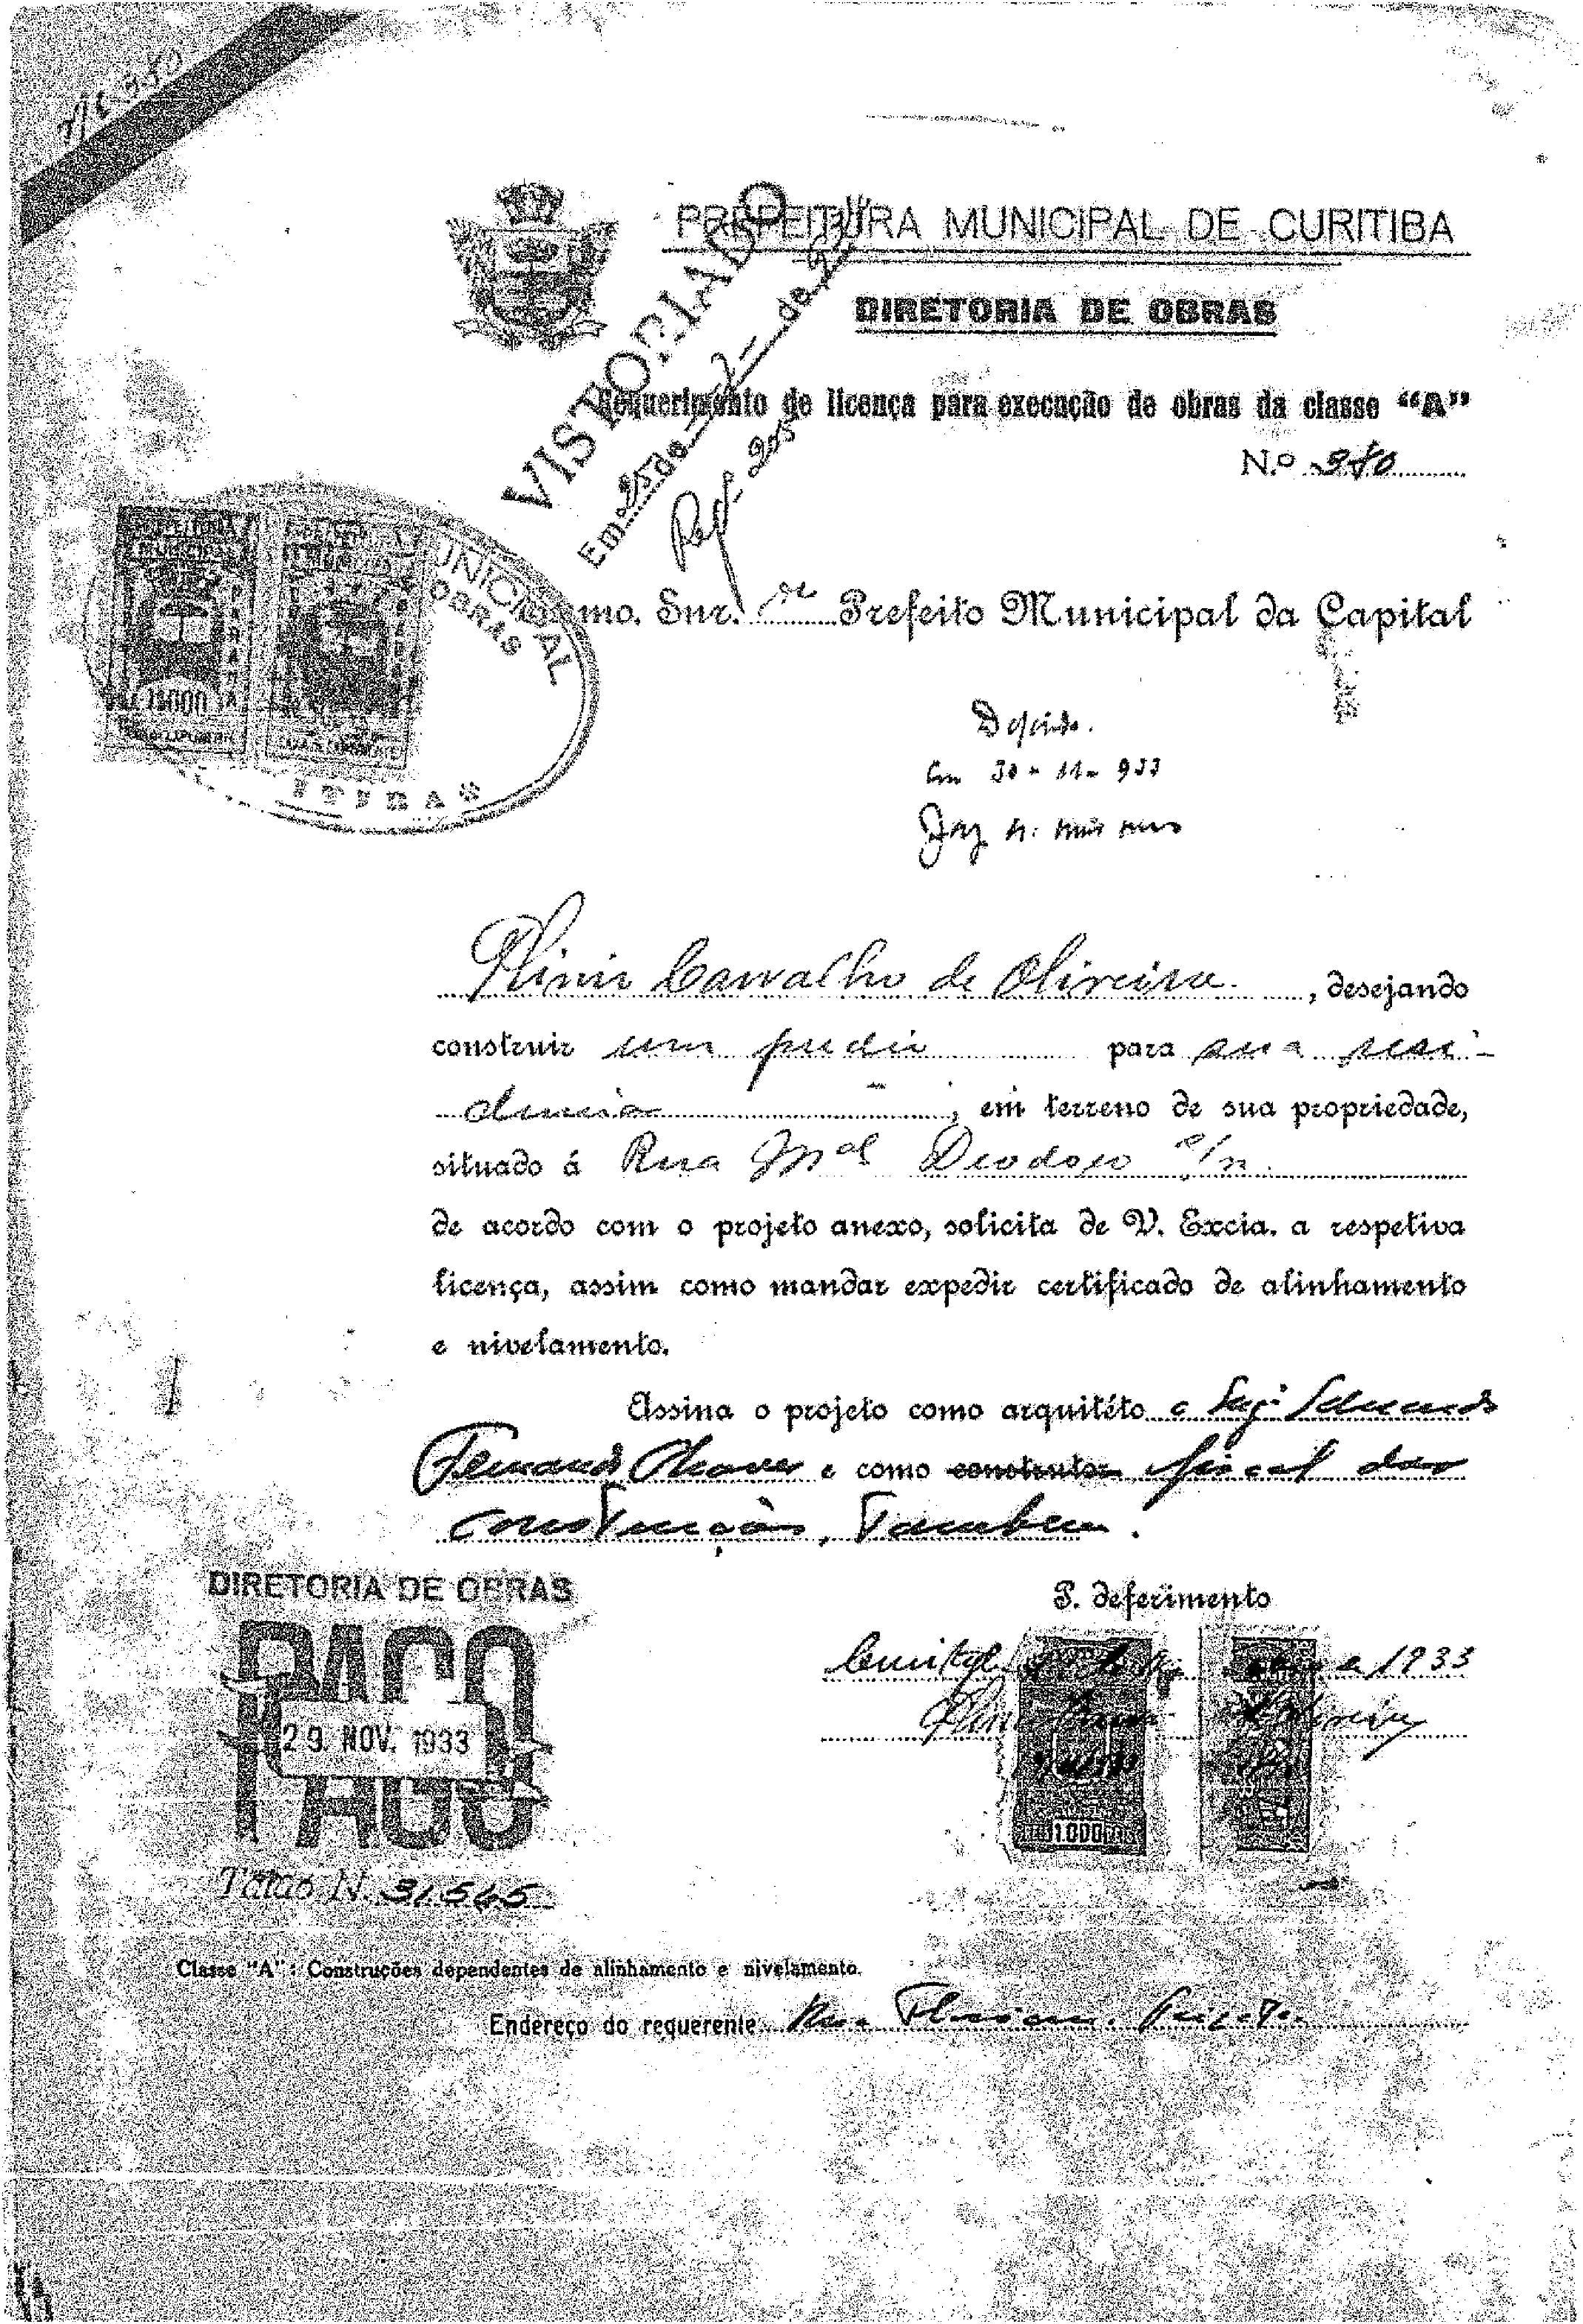 PREFEITURA MUNICIPAL DE CURITIBA
DIRETORIA DE OBRAS
Requerimento de licença para execução de obras da classe "A"
N.o
VISTORIADO
Em 25 de
Ref. 205
mo. Snr. Dr. Prefeito Municipal da Capital
MUNICIPAL
OBRAS
PREFEITURA
MUNICIPAL
PARANÁ
1$000
Deferido.
Em 30 - 11 - 933
Plinio Carvalho de Oliveira. , desejando
construir um predio para sua resi-
dencia , em terreno de sua propriedade,
situado á Rua Mal Deodoro s/n.
de acordo com o projeto anexo, solicita de V. Excia. a respetiva
licença, assim como mandar expedir certificado de alinhamento
e nivelamento.
Assina o projeto como arquitéto o Eng. Eduardo
Fernando Chaves e como construtor fiscal das
construção, Tambem.
DIRETORIA DE OBRAS
PAGO
29. NOV. 1933
PAGO
Talão N. 31.545
P. deferimento
1933
1.000
Classe "A": Construções dependentes de alinhamento e nivelamento.
Endereço do requerente Rua Floriano Peixoto.